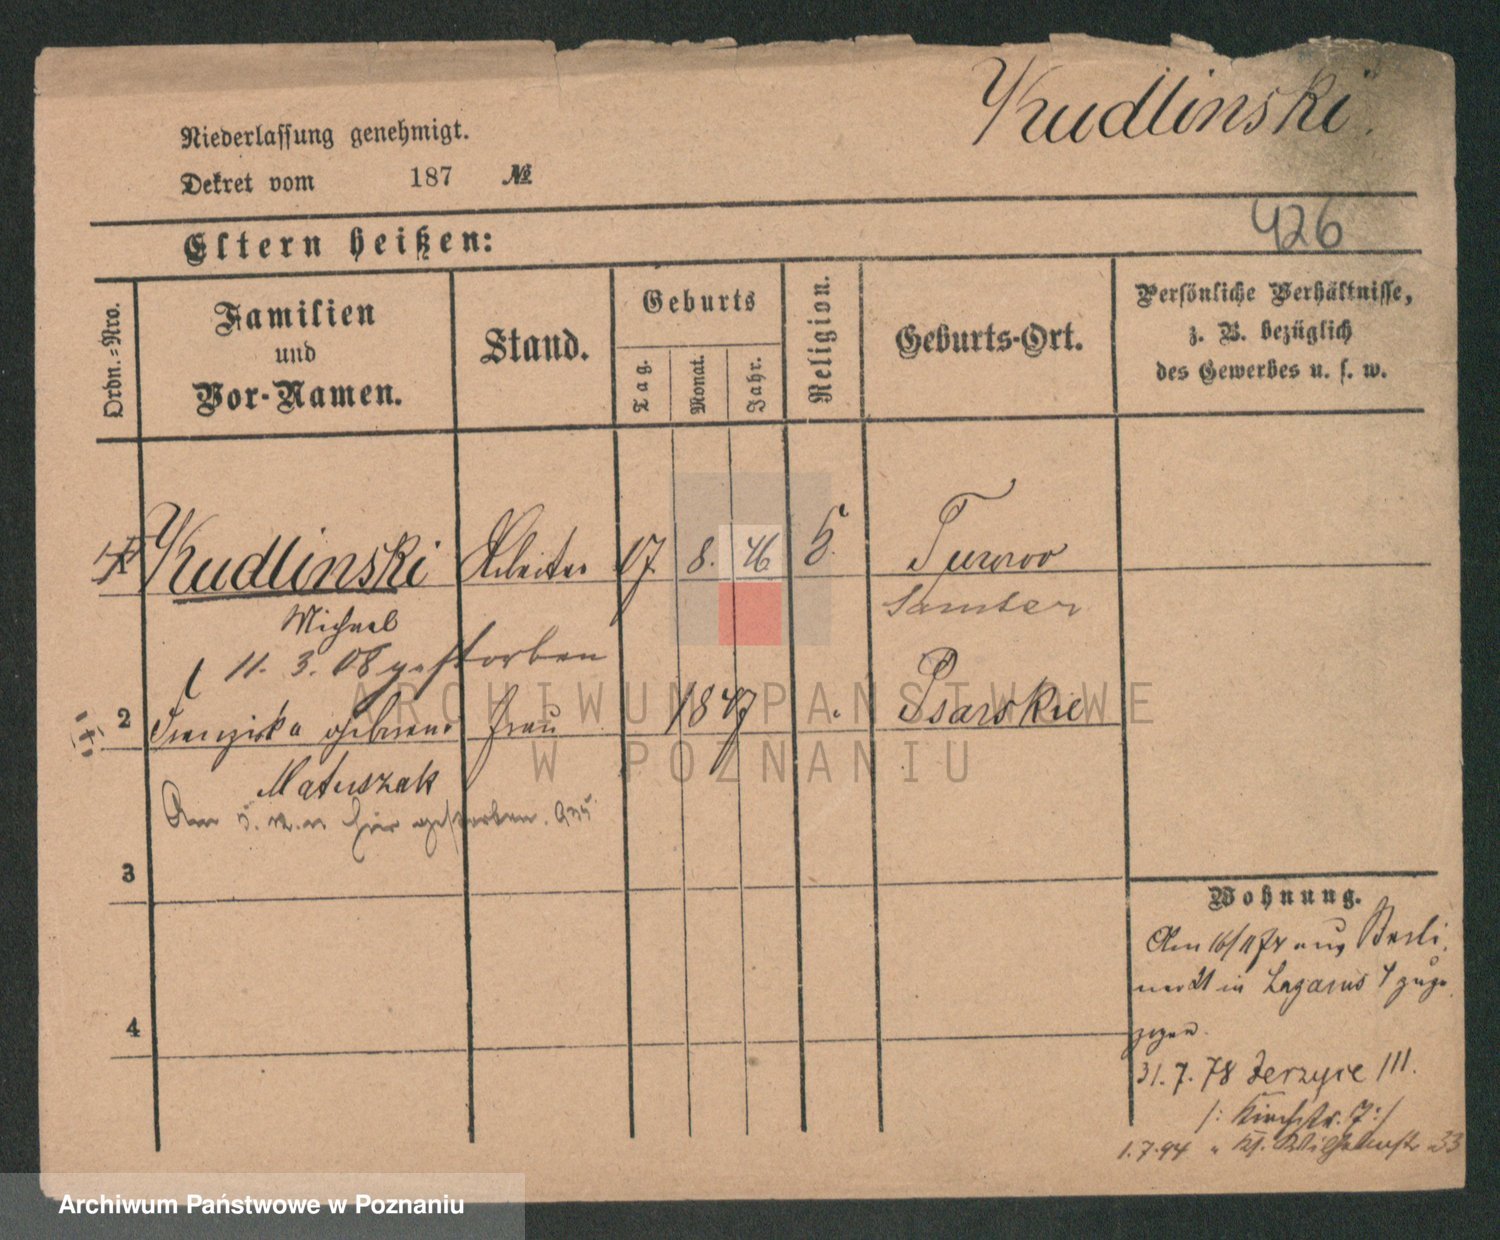 Kudlinski.
Niederlassung genehmigt.
Dekret vom 187 №
426
Eltern heißen:
Ordn.=Nro.
Familien
und
Vor-Namen.
Stand.
Geburts
Tag.
Monat.
Jahr.
Religion.
Geburts-Ort.
Persönliche Verhältnisse,
z. B. bezüglich
des Gewerbes u. s. w.
Kudlinski Arbeiter 17. 8. 46
Samter
Michael
11. 3. 08 gestorben
2 Franziska geborene Frau 1847 Psarskie
Matuszak
Am hier gestorben.
3
Wohnung.
Am aus Berlin
in Lazarus zuge
zogen
4
31. 7. 78 Jerzyce 111.
/: Kirchstr. 7 :/
1. 7. 94 " Kl. 33
ARCHIWUM PAŃSTWOWE
W POZNANIU
Archiwum Państwowe w Poznaniu